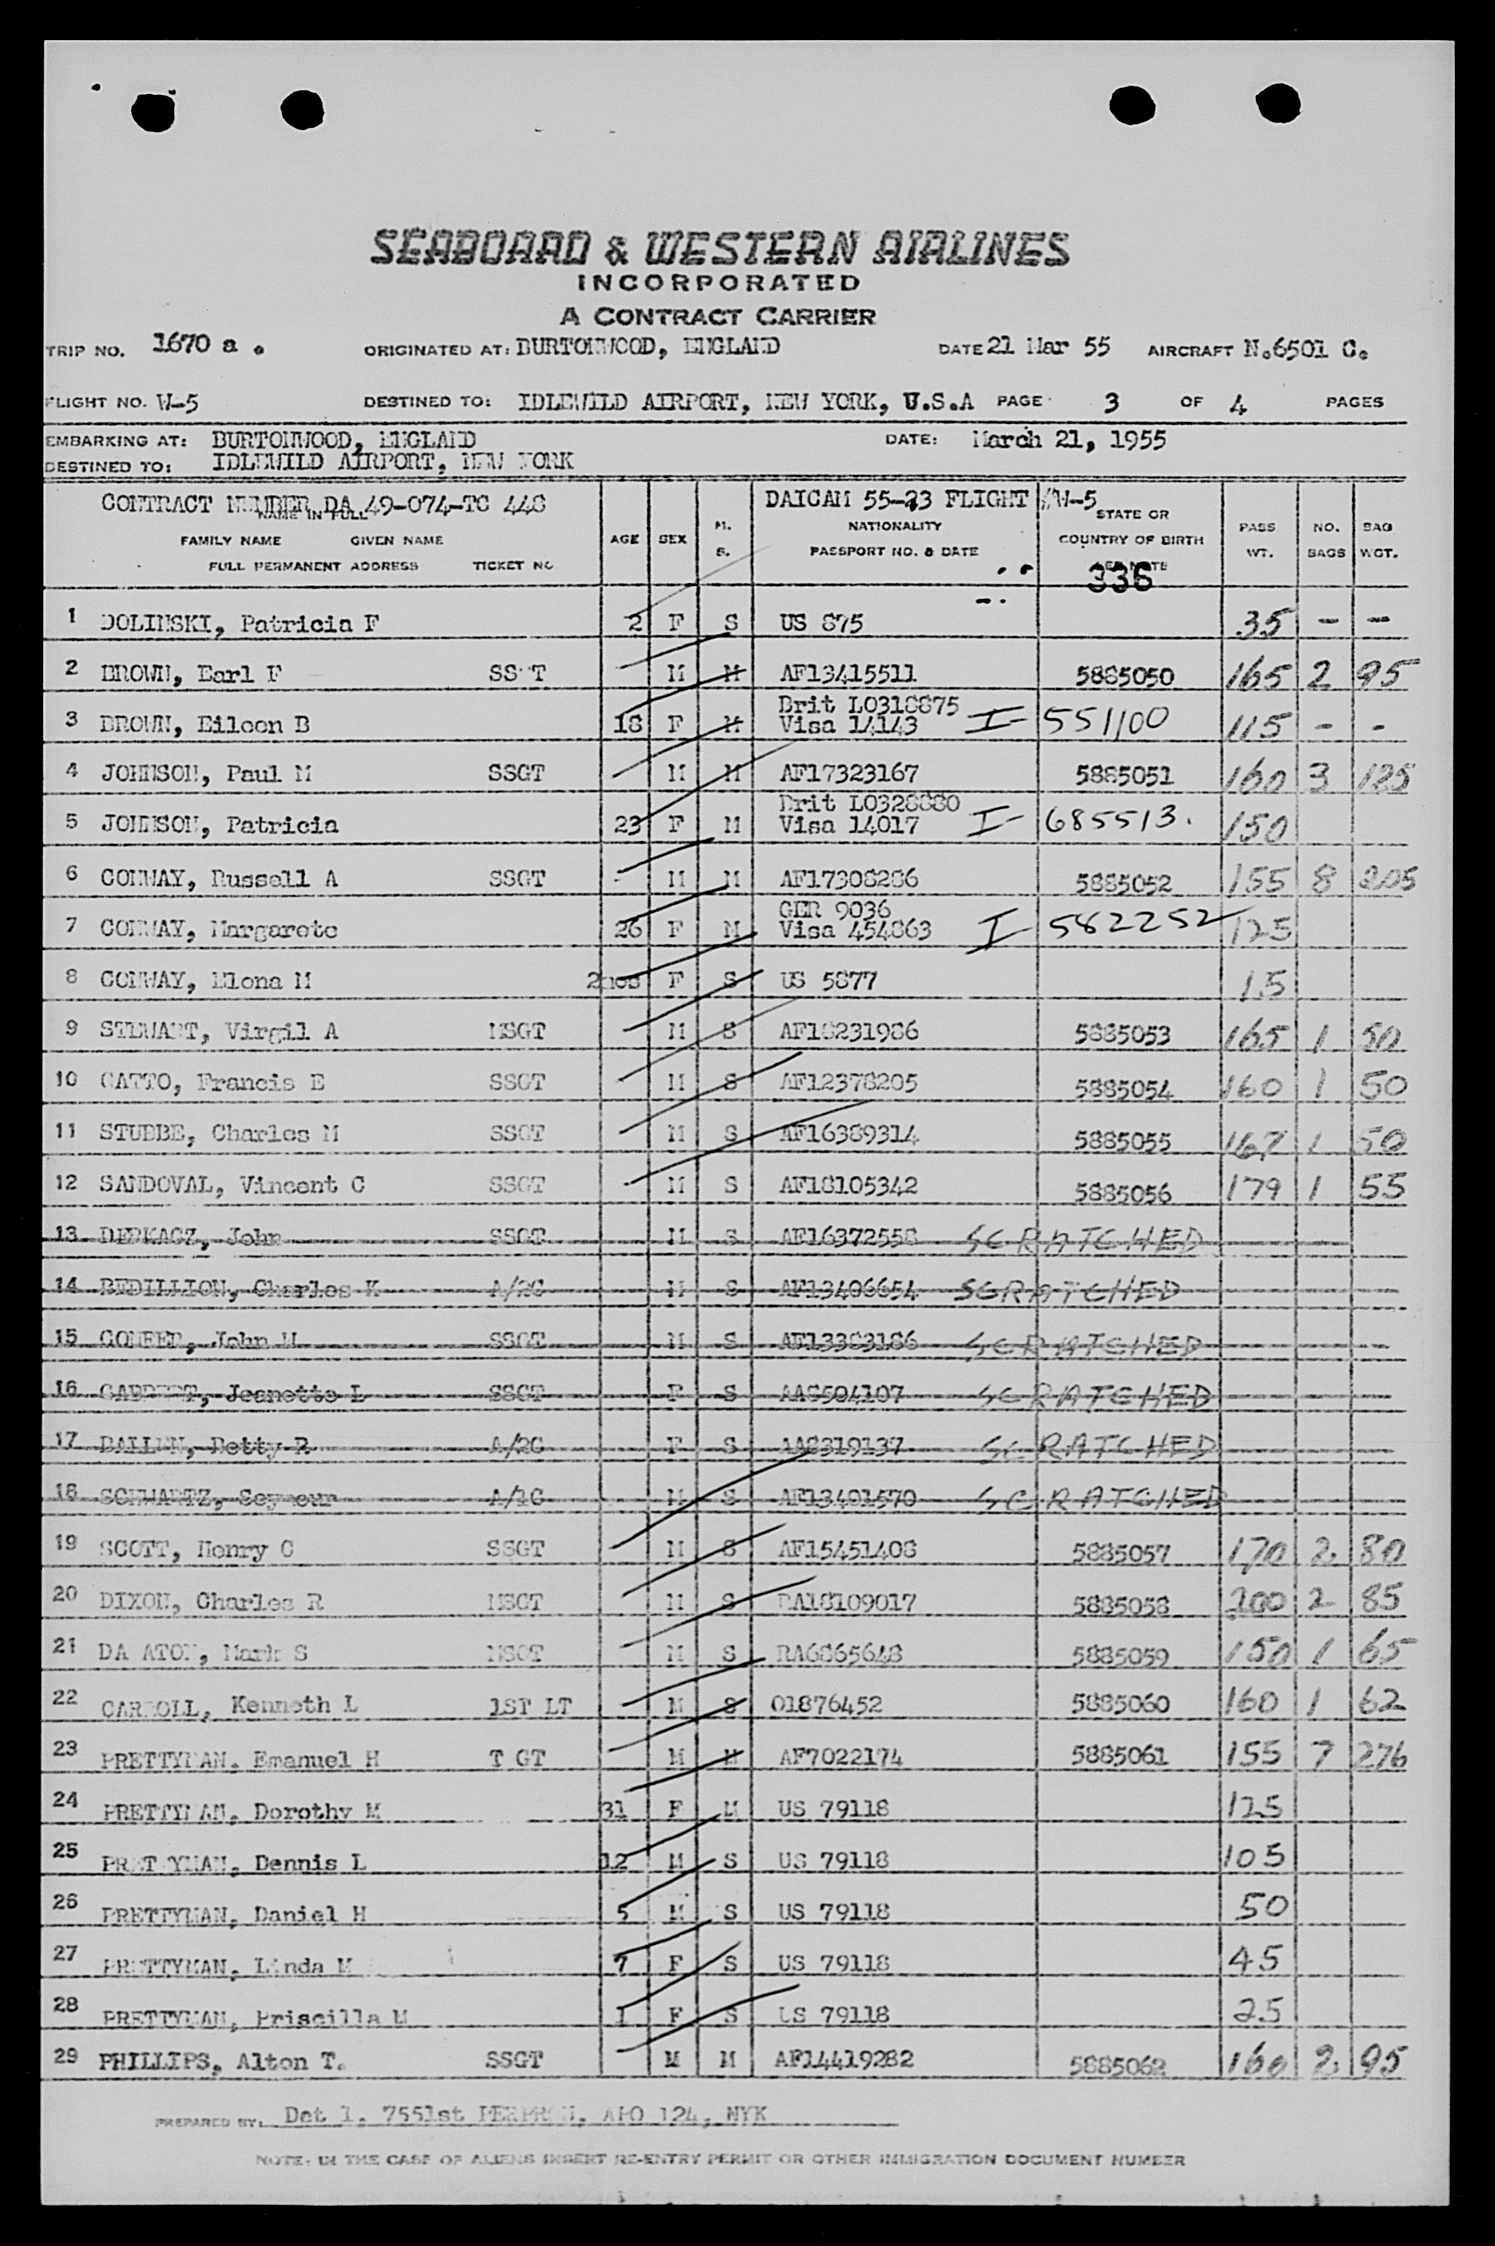 SEABOARD & WESTERN AIRLINES
INCORPORATED
A CONTRACT CARRIER
TRIP NO. 1670 a . ORIGINATED AT: BURTONWOOD, ENGLAND DATE 21 Mar 55 AIRCRAFT N.6501 C.
FLIGHT NO. W-5 DESTINED TO: IDLEWILD AIRPORT, NEW YORK, U.S.A PAGE 3 OF 4 PAGES
EMBARKING AT: BURTONWOOD, ENGLAND DATE: March 21, 1955
DESTINED TO: IDLEWILD AIRPORT, NEW YORK
CONTRACT NUMBER DA 49-074-TC 448 DAICAM 55-23 FLIGHT #W-5
NAME IN FULL
FAMILY NAME GIVEN NAME AGE SEX M. S. NATIONALITY STATE OR PASS NO. BAG
FULL PERMANENT ADDRESS TICKET NO PASSPORT NO. & DATE COUNTRY OF BIRTH WT. BAGS WGT.
336
1 DOLINSKI, Patricia F 2 F S US 875 35 - -
2 BROWN, Earl F SS T M M AF13415511 5885050 165 2 95
3 BROWN, Eileen B 18 F M Brit LO318875 Visa 14143 I- 551100 115 - -
4 JOHNSON, Paul M SSGT M M AF17323167 5885051 160 3 125
5 JOHNSON, Patricia 23 F M Brit LO328880 Visa 14017 I- 685513. 150
6 CONWAY, Russell A SSGT - M M AF17308286 5885052 155 8 205
7 CONWAY, Margarete 26 F M GER 9036 Visa 454863 I 582252 125
8 CONWAY, Elona M 2mos F S US 5877 15
9 STEWART, Virgil A MSGT M S AF18231986 5885053 165 1 50
10 CATTO, Francis E SSGT M S AF12378205 5885054 160 1 50
11 STUBBE, Charles M SSGT M S AF16389314 5885055 167 1 50
12 SANDOVAL, Vincent C SSGT M S AF18105342 5885056 179 1 55
13 DERKACZ, John SSGT M S AF16372558 SCRATCHED
14 BEDILLION, Charles K A/2C M S AF13406654 SCRATCHED
15 John M SSGT M S AF13383186 SCRATCHED
16 Jeanette L SSGT F S AA8504107 SCRATCHED
17 Betty R A/2C F S AA8319137 SCRATCHED
18 SCHWARTZ, Seymour A/1C M S AF13401570 SCRATCHED
19 SCOTT, Henry C SSGT M S AF15451408 5885057 170 2 80
20 DIXON, Charles R MSGT M S RA18109017 5885058 200 2 85
21 DA ATON, Mark S MSGT M S RA6865648 5885059 150 1 65
22 CARROLL, Kenneth L 1ST LT M S O1876452 5885060 160 1 62
23 PRETTYMAN, Emanuel H T GT M M AF7022174 5885061 155 7 276
24 PRETTYMAN, Dorothy M 31 F M US 79118 125
25 PRETTYMAN, Dennis L 12 M S US 79118 105
26 PRETTYMAN, Daniel H 5 M S US 79118 50
27 PRETTYMAN, Linda M 7 F S US 79118 45
28 PRETTYMAN, Priscilla M 1 F S US 79118 25
29 PHILLIPS, Alton T. SSGT M M AF14419282 5885062 160 2 95
PREPARED BY: Det 1, 7551st PERPRON, APO 124, NYK
NOTE: IN THE CASE OF ALIENS INSERT RE-ENTRY PERMIT OR OTHER IMMIGRATION DOCUMENT NUMBER